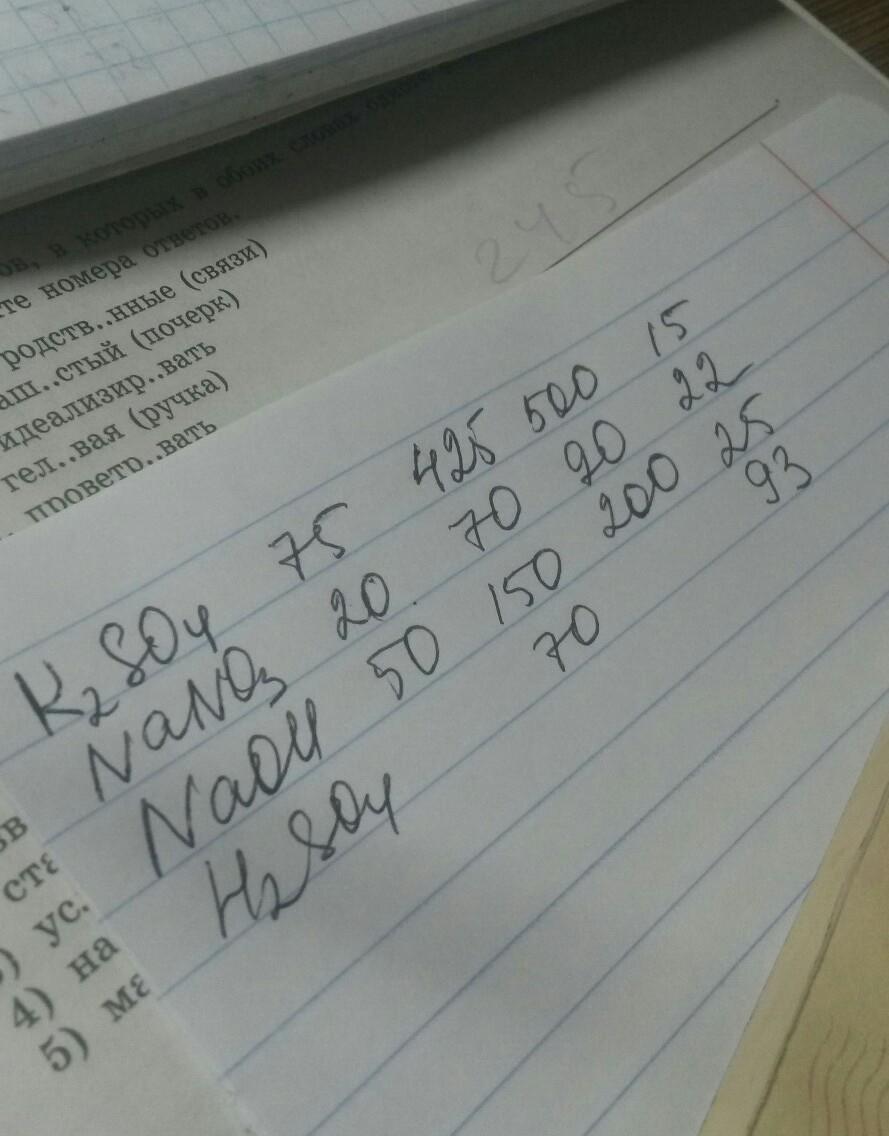 в которых в обоих словах
те номера ответов.
родств..нные (связи)
аш..стый (почерк)
идеализир..вать
гел..вая (ручка)
проветр..вать
245
K₂SO₄ 75 425 500 15
NaNO₃ 20 70 90 22
NaOH 50 150 200 25
H₂SO₄ 70 93
ста
) ус.
4) на
5) ма